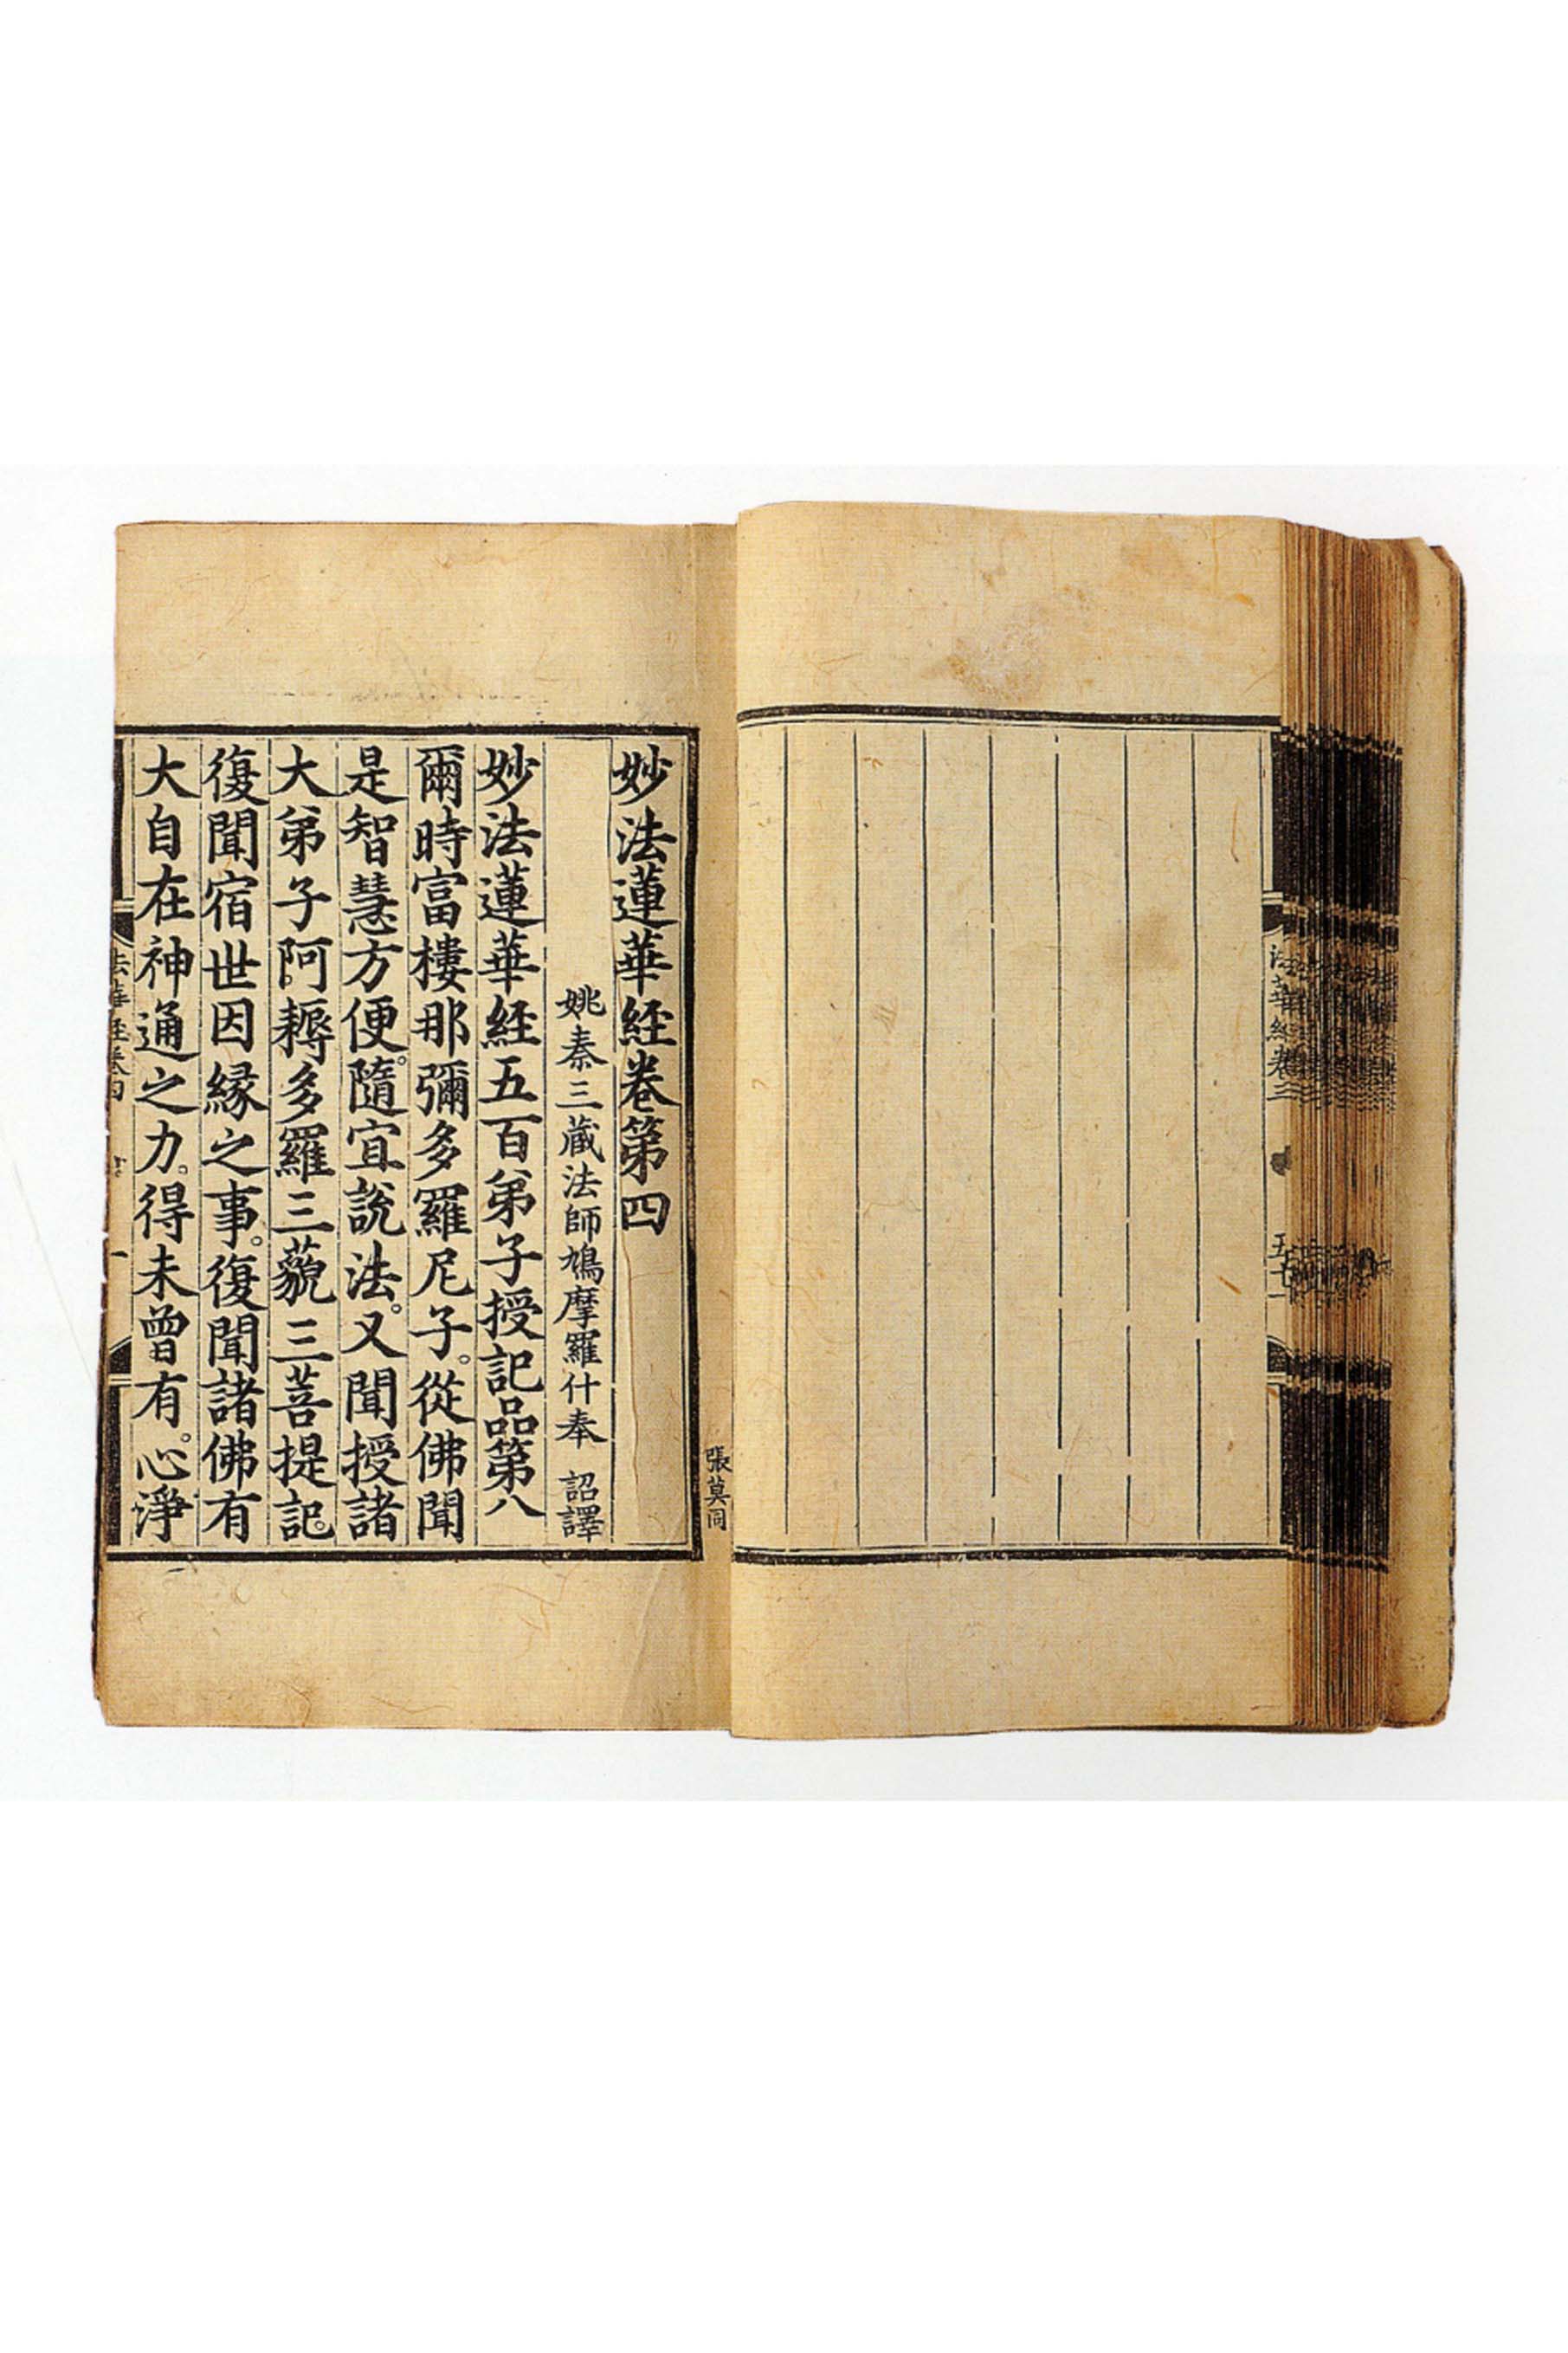 法華經卷三
五十一
張莫同
妙法蓮華経卷第四
姚秦三藏法師鳩摩羅什奉 詔譯
妙法蓮華経五百弟子授記品第八
爾時富樓那彌多羅尼子。從佛聞
是智慧方便。隨宜説法。又聞授諸
大弟子阿。耨多羅三藐三菩提記。
復聞宿世因縁之事。復聞諸佛有
大自在神通之力。得未曾有。心淨
法華経卷四
一